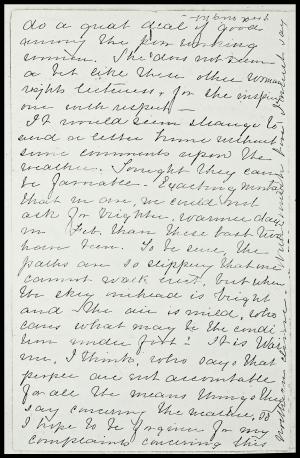 do a great deal of good
among the poor working
women. She does not seem
a bit like these other Woman
rights lecturers & for she inspires
one with respect —
It would seem strange to
send a letter home without
some comments upon the
weather. Tonight they can
be favorable. Exacting mortals
that we are, we could not
ask for brighter, warmer days
in Feb. than these last two
have been. To be sure, the
paths are so slippery that one
cannot walk erect, but when
the sky overhead is bright
and the air is mild, who
cares what may be the condi
tion under foot? It is War
ner, I think, who says that
people are not accountable
for all the mean things they
say concerning the weather, so
I hope to be forgiven for my
complaints concerning this